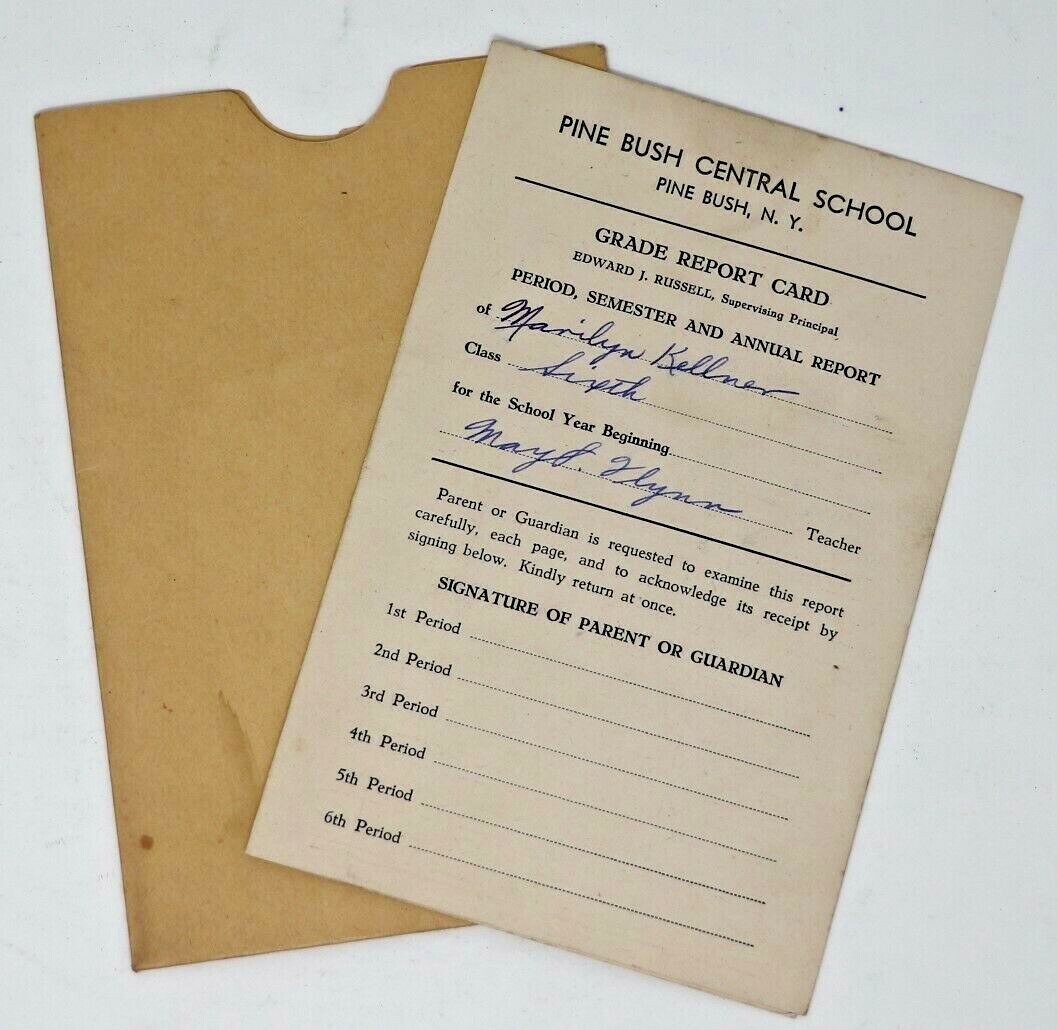 PINE BUSH CENTRAL SCHOOL
PINE BUSH, N. Y.
GRADE REPORT CARD
EDWARD J. RUSSELL, Supervising Principal
PERIOD, SEMESTER AND ANNUAL REPORT
of Marilyn Kellner
Class Sixth
for the School Year Beginning
May J. Flynn Teacher
Parent or Guardian is requested to examine this report
carefully, each page, and to acknowledge its receipt by
signing below. Kindly return at once.
SIGNATURE OF PARENT OR GUARDIAN
1st Period
2nd Period
3rd Period
4th Period
5th Period
6th Period